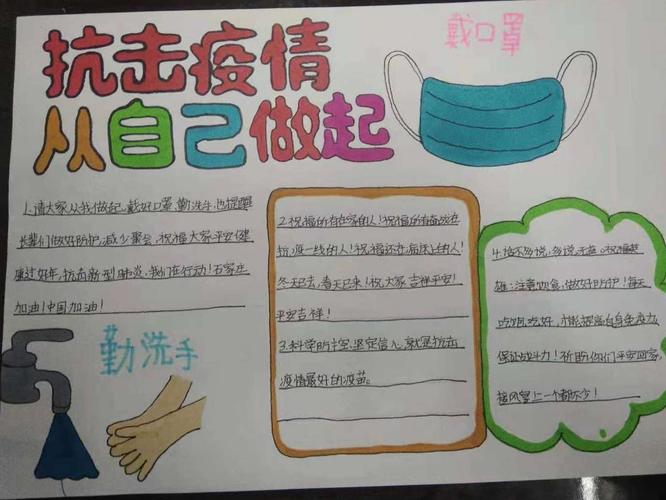 抗击疫情
从自己做起
戴口罩
1.请大家从我做起,戴好口罩,勤洗手,也提醒
长辈们做好防护,减少聚会,祝福大家平安健
康过好年,抗击新型肺炎,我们在行动!石家庄
加油!中国加油!
勤洗手
2.祝福所有在家的人!祝福所有奋战在
抗疫一线的人!祝福还在病床上的人!
冬天已去,春天已来!祝大家吉祥平安!
平安吉祥!
3.科学防控,坚定信心,就是抗击
疫情最好的疫苗。
4.话不多说,多说无益。祝福英
雄:注意饮食,做好防护!每天
吃好,才能提高自身免疫力,
保证战斗力!祈盼你们平安回家,
接风宴上一个都不少!